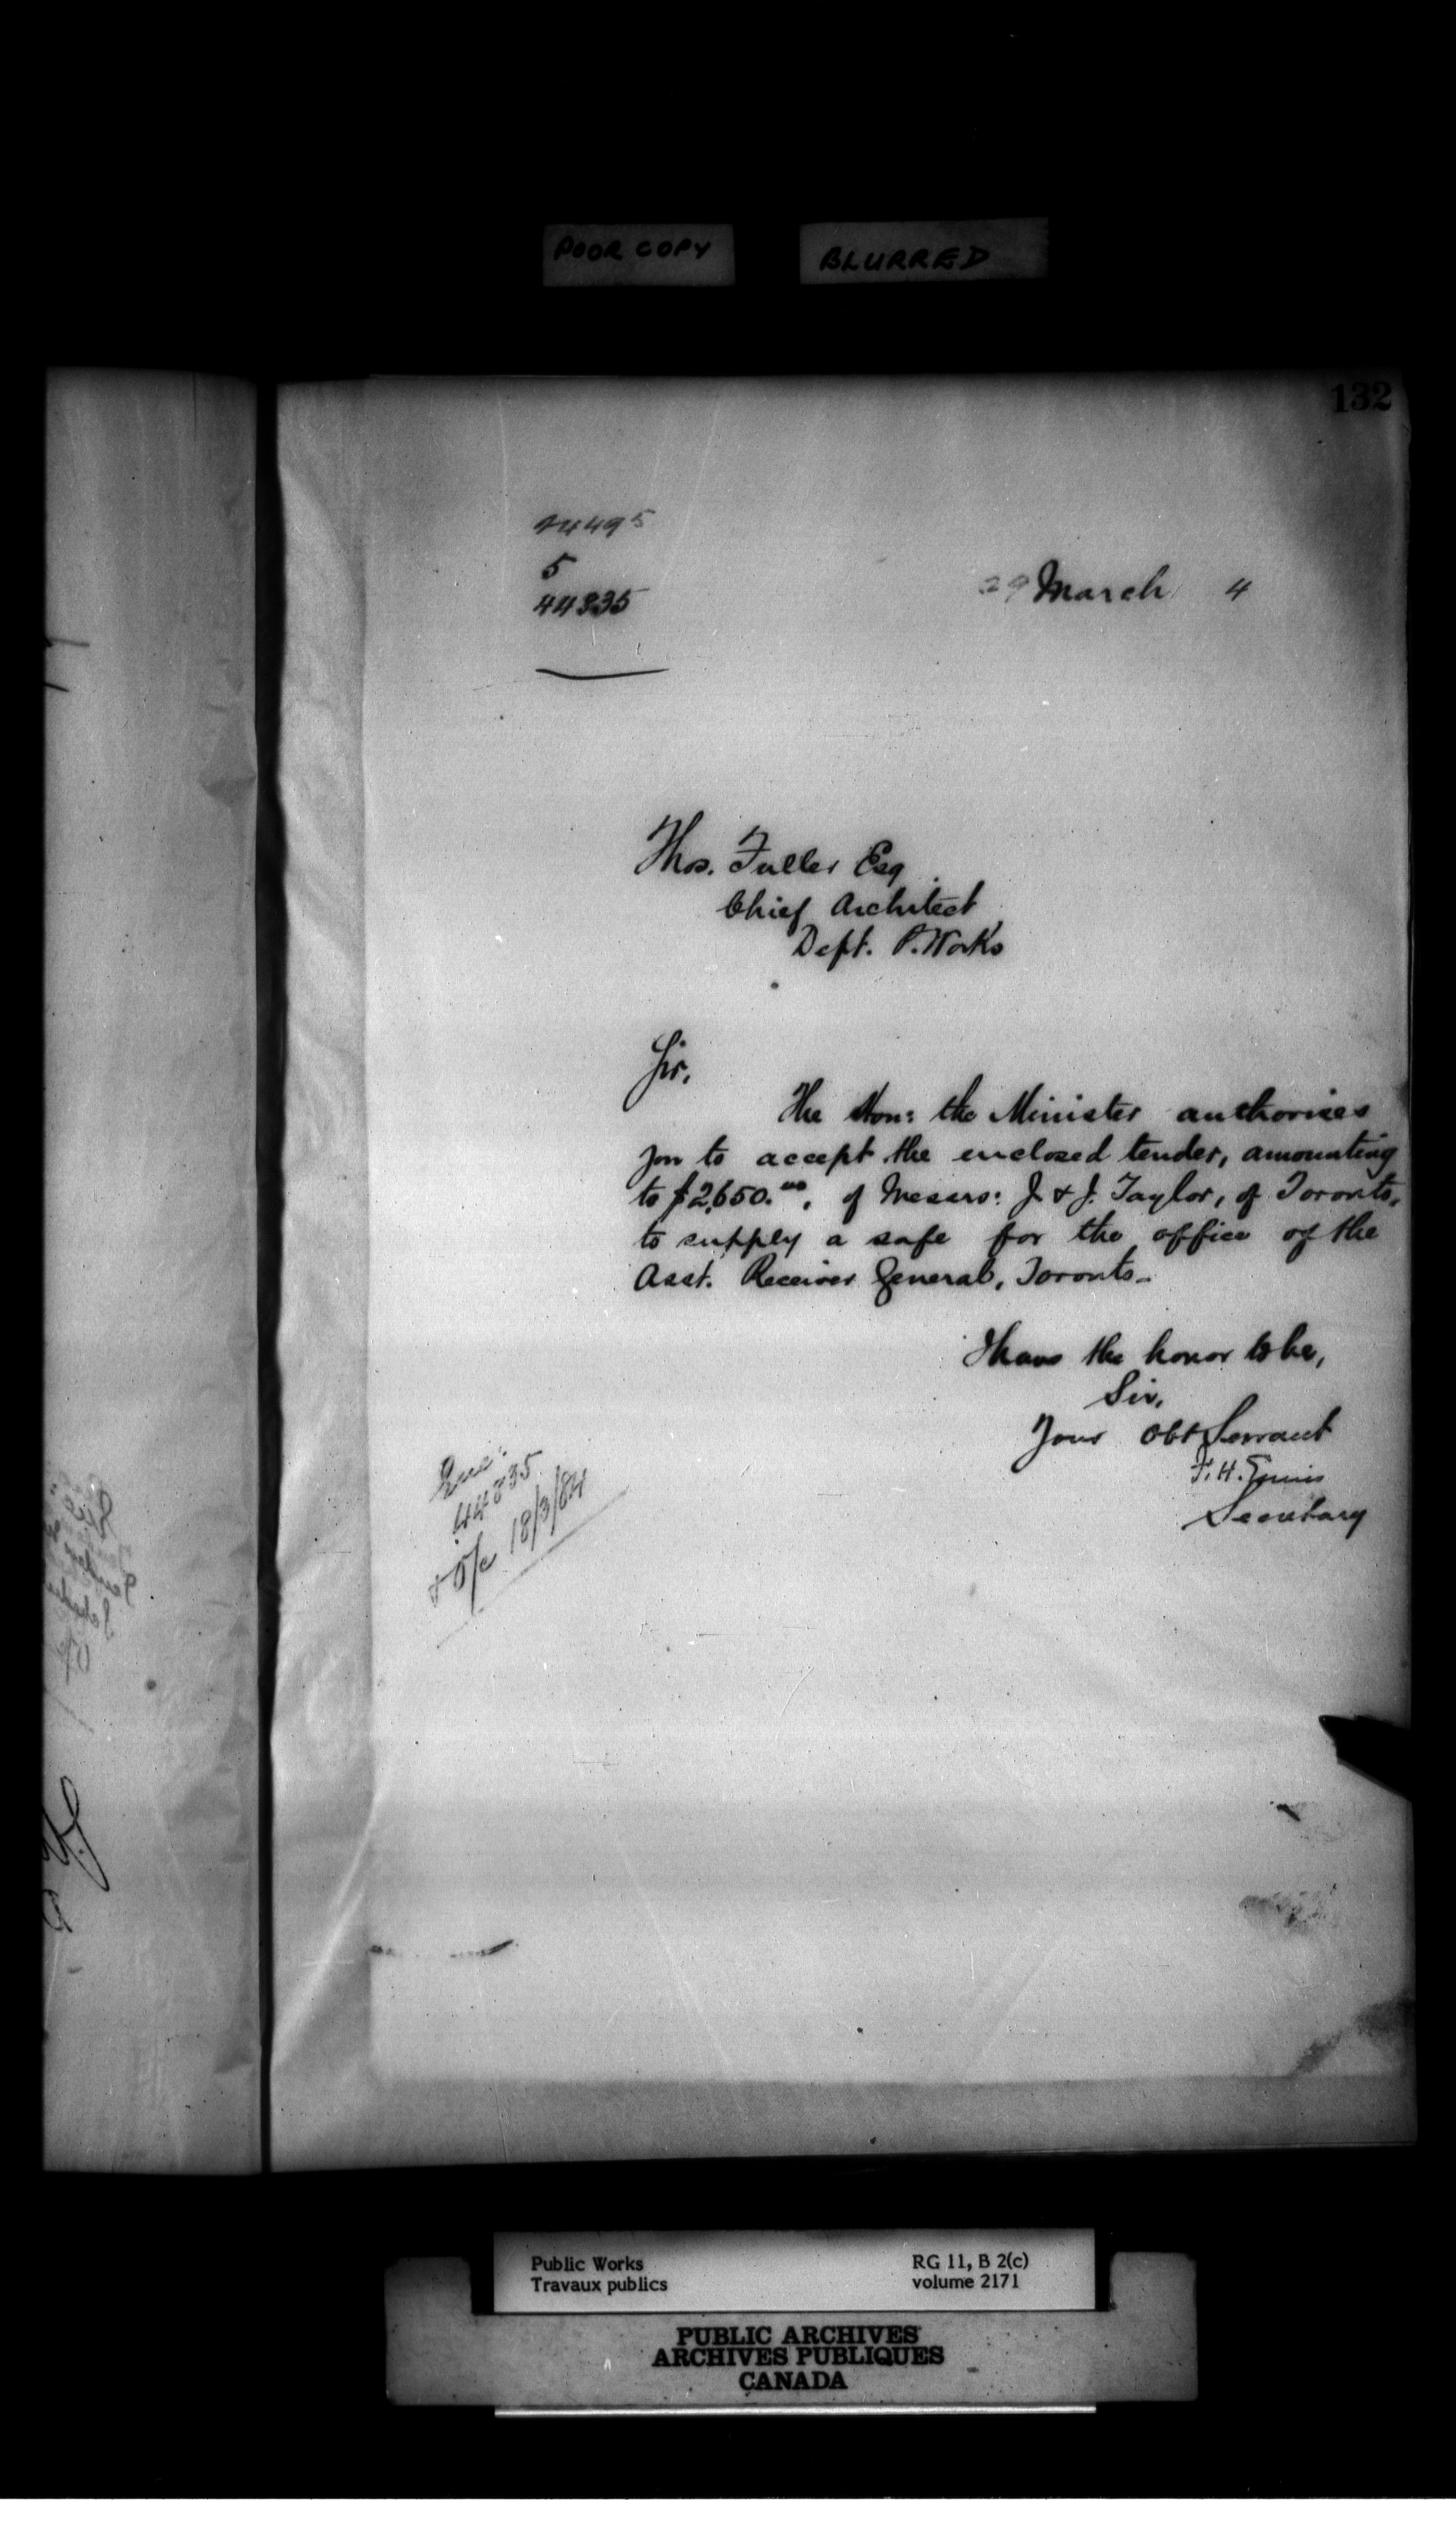 POOR COPY
BLURRED
132
44495
5
44835
29 March 4
Thos. Fuller Esq
Chief Architect
Dept. P. Works
Sir,
The Hon: the Minister authorises
you to accept the enclosed tender, amounting
to $2,650.00, of Messrs: J. & J. Taylor, of Toronto,
to supply a safe for the office of the
Asst. Receiver General, Toronto_
I have the honor to be,
Sir,
Your Obt Servant
F. H. Ennis
Secretary
Enc:
44835
& O/c 18/3/84
Public Works
Travaux publics
RG 11, B 2(c)
volume 2171
PUBLIC ARCHIVES
ARCHIVES PUBLIQUES
CANADA